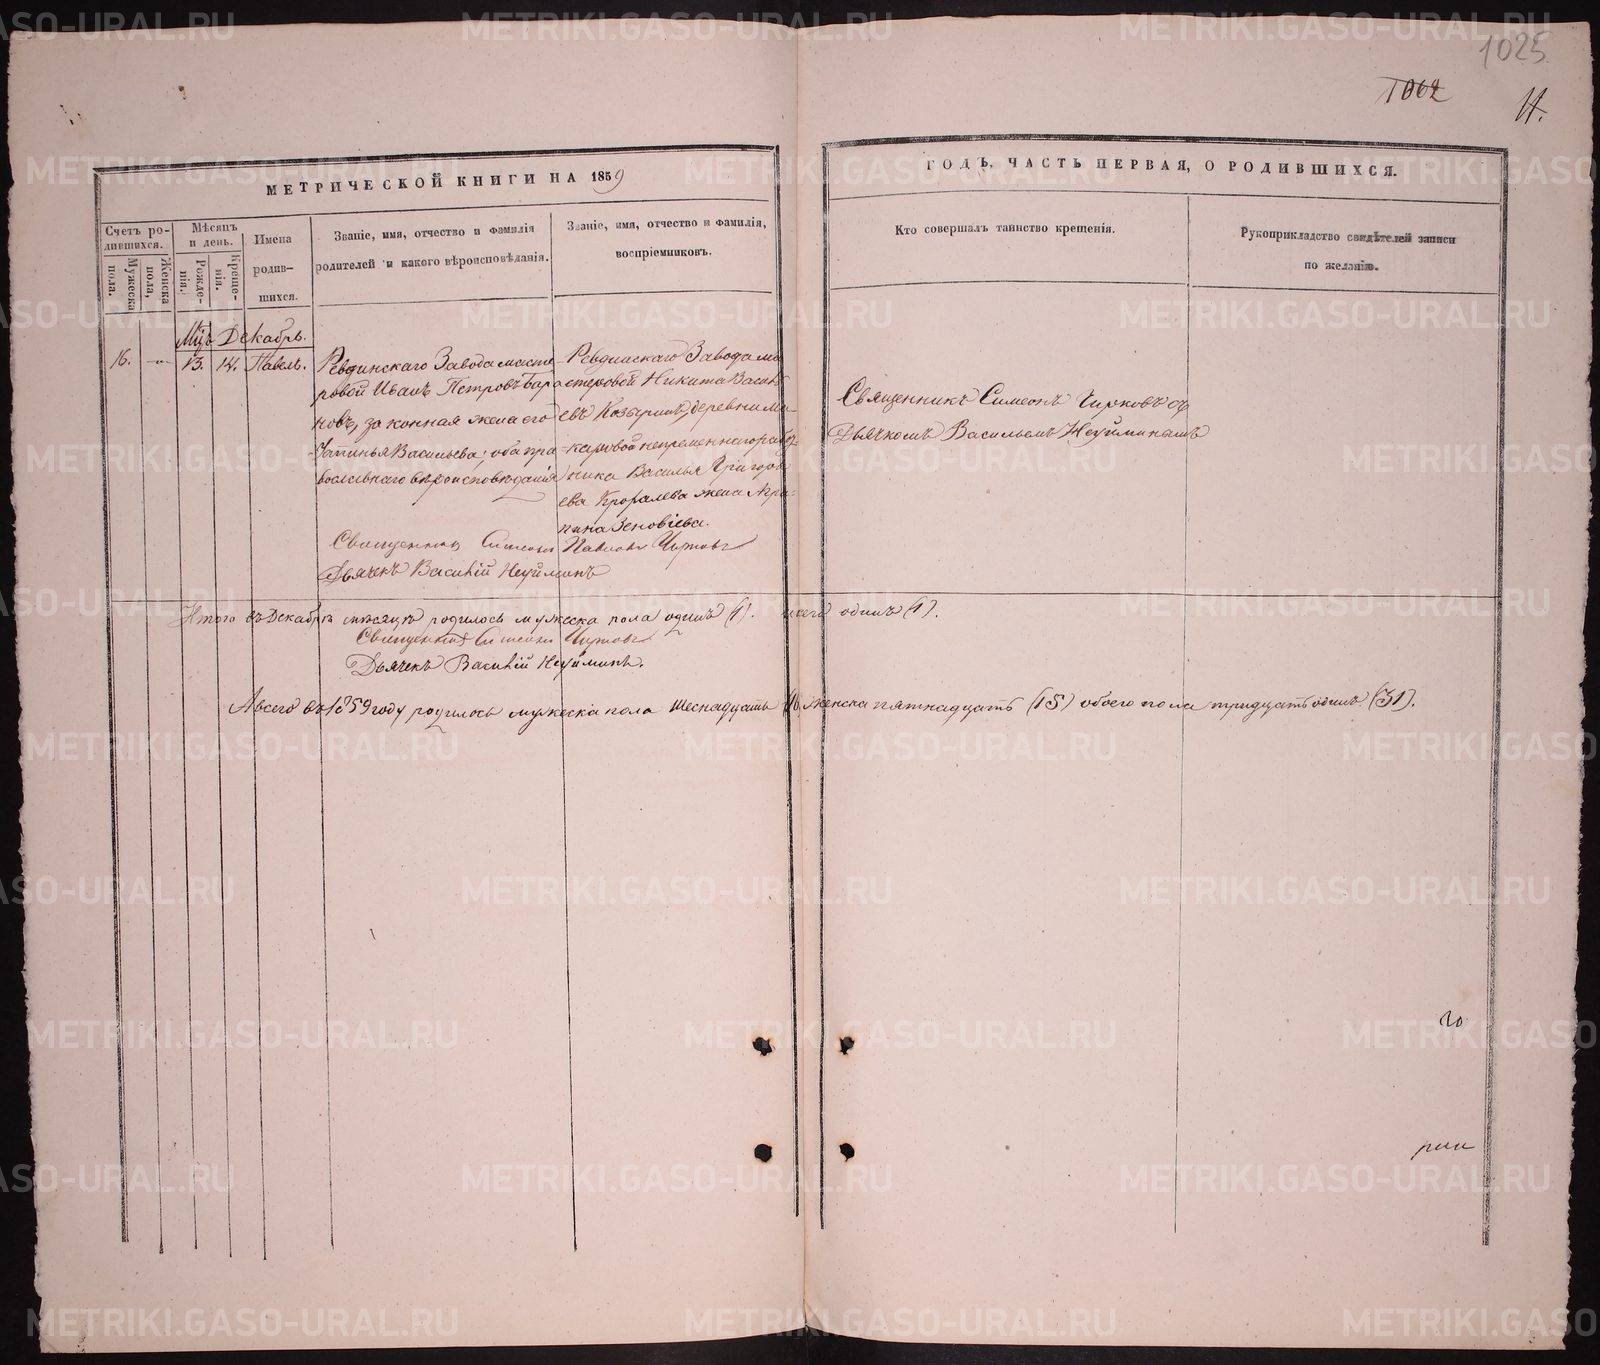 1025
1062
11.
МЕТРИЧЕСКОЙ КНИГИ НА 1859
ГОДЪ, ЧАСТЬ ПЕРВАЯ, О РОДИВШИХСЯ.
Счетъ ро-
дившихся.
Мужеска
пола.
Женска
пола,
Мѣсяцъ
и день.
Рожде-
нія.
Креще-
нія.
Имена
родив-
шихся.
Званіе, имя, отчество и фамилія
родителей и какого вѣроисповѣданія.
Званіе, имя, отчество и фамилія,
воспріемниковъ.
Кто совершалъ таинство крещенія.
Рукоприкладство свидѣтелей записи
по желанію.
Мцъ Декабрь.
16. 13. 14. Павелъ.
Ревдинскаго Завода масте
ровой Иванъ Петровъ Бара
новъ, законная жена его
Васильева; оба пра
вославнаго вѣроисповѣданія
Ревдинскаго Завода ма
стеровой Никита Василь
евъ Козыринъ, деревни Ма-
каровой непременнаго работ
ника Василья Григорь
ева жена Агри-
пина Зеновіева.
Священникъ Симеонъ Чирковъ съ
Дьячкомъ Васильемъ Неуйминымъ
Священникъ Симеонъ Павловъ Чирковъ
Дьячекъ Василій Неуйминъ
Итого въ Декабрѣ мѣсяцѣ родилось мужеска пола одинъ (1). всего одинъ (1).
Священникъ Симеонъ Чирковъ
Дьячекъ Василій Неуйминъ.
А всего въ 1859 году родилось мужеска пола шеснадцать 16 женска пятнадцать (15) обоего пола тридцать одинъ (31).
го
рии
METRIKI.GASO-URAL.RU